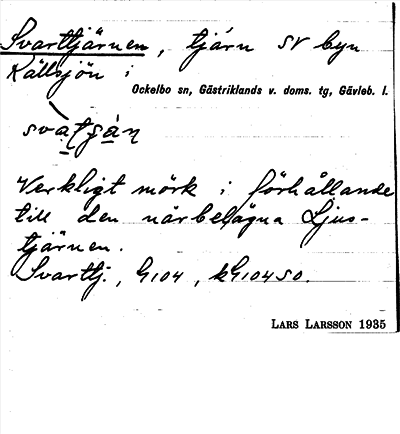 Svarttjärnen, tjärn SV byn
Källsjön i
Ockelbo sn, Gästriklands v. doms. tg, Gävleb. l.
Verkligt mörk i förhållande
till den närbelägna Ljus-
tjärnen.
Svarttj., G104, kG104SO.
LARS LARSSON 1935